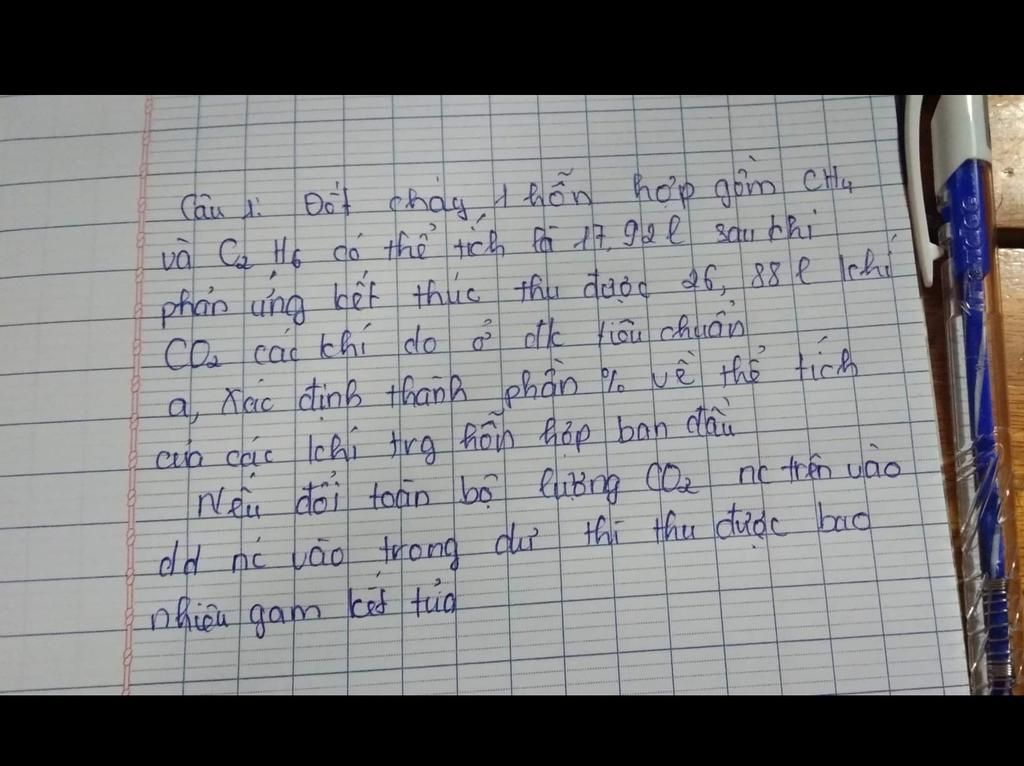 Câu 1: Đốt cháy 1 hỗn hợp gồm CH4
và C2H6 có thể tích là 17,92l sau khi
phản ứng kết thúc thu được 26,88l khí
CO2 các khí đo ở đk tiêu chuẩn
a, Xác định thành phần % về thể tích
của các khí trg hỗn hợp ban đầu
Nếu đổi toàn bộ lượng CO2 nc trên vào
dd nc vào trong dư thì thu được bao
nhiêu gam kết tủa